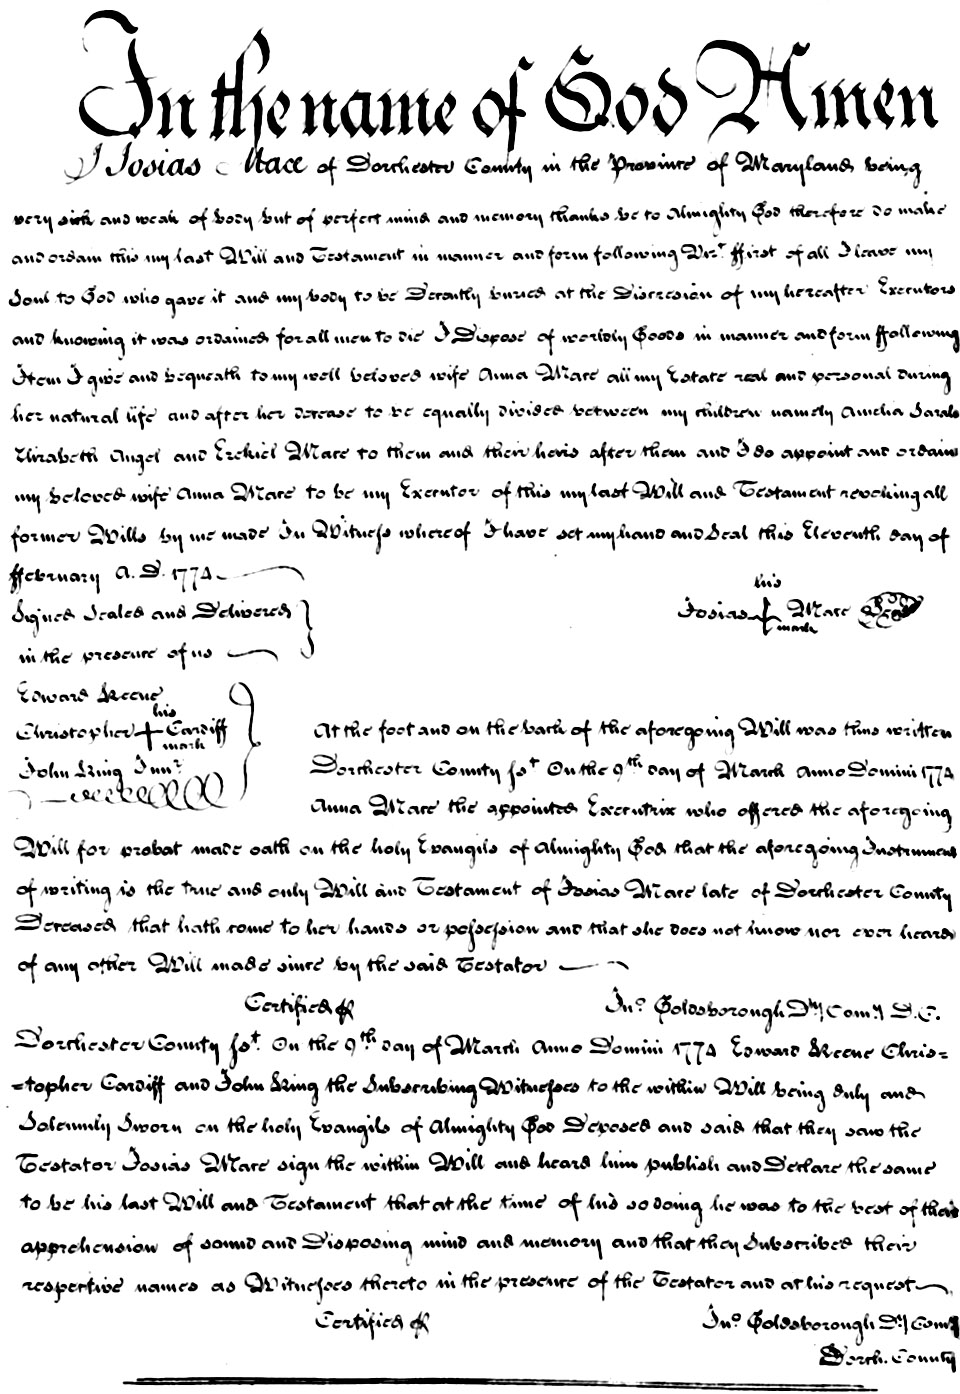 In the name of God Amen
I Josias Mace of Dorchester County in the Province of Maryland being
very sick and weak of body but of perfect mind and memory thanks be to Almighty God therefore do make
and ordain this my last Will and Testament in manner and form following Vizt. ffirst of all I leave my
Soul to God who gave it and my body to be Decently buried at the Discression of my hereafter Executors
and knowing it was ordained for all men to die I Dispose of worldly Goods in manner and form ffollowing
Item I give and bequeath to my well beloved wife Anna Mace all my Estate real and personal during
her natural life and after her decease to be equally divided between my children namely Amelia Sarah
Elizabeth Angel and Ezekiel Mace to them and their heirs after them and I do appoint and ordain
my beloved wife Anna Mace to be my Executor of this my last Will and Testament revoking all
former Wills by me made In Witness whereof I have set my hand and Seal this Eleventh day of
ffebruary A. D. 1774
Signed Sealed and Delivered
in the presence of us
his
Josias + Mace Seal
mark
Edward Keene
his
Christopher + Cardiff
mark
John King Junr
At the foot and on the back of the aforegoing Will was thus written
Dorchester County sst On the 9th day of March Anno Domini 1774
Anna Mace the appointed Executrix who offered the aforegoing
Will for probat made oath on the holy Evangils of Almighty God that the aforegoing Instrument
of writing is the true and only Will and Testament of Josias Mace late of Dorchester County
Deceased that hath come to her hands or possession and that she does not know nor ever heard
of any other Will made since by the said Testator
Certified Jno. Goldsborough Dty Comy D. C.
Dorchester County sst. On the 9th day of March Anno Domini 1774 Edward Keene Chris=
=topher Cardiff and John King the Subscribing Witnesses to the within Will being duly and
Solemnly Sworn on the holy Evangils of Almighty God Deposed and said that they saw the
Testator Josias Mace sign the within Will and heard him publish and Declare the same
to be his last Will and Testament that at the time of his so doing he was to the best of their
apprehension of sound and Disposing mind and memory and that they Subscribed their
respective names as Witnesses thereto in the presence of the Testator and at his request
Certified Jno. Goldsborough Dty Comy
Dorch. County